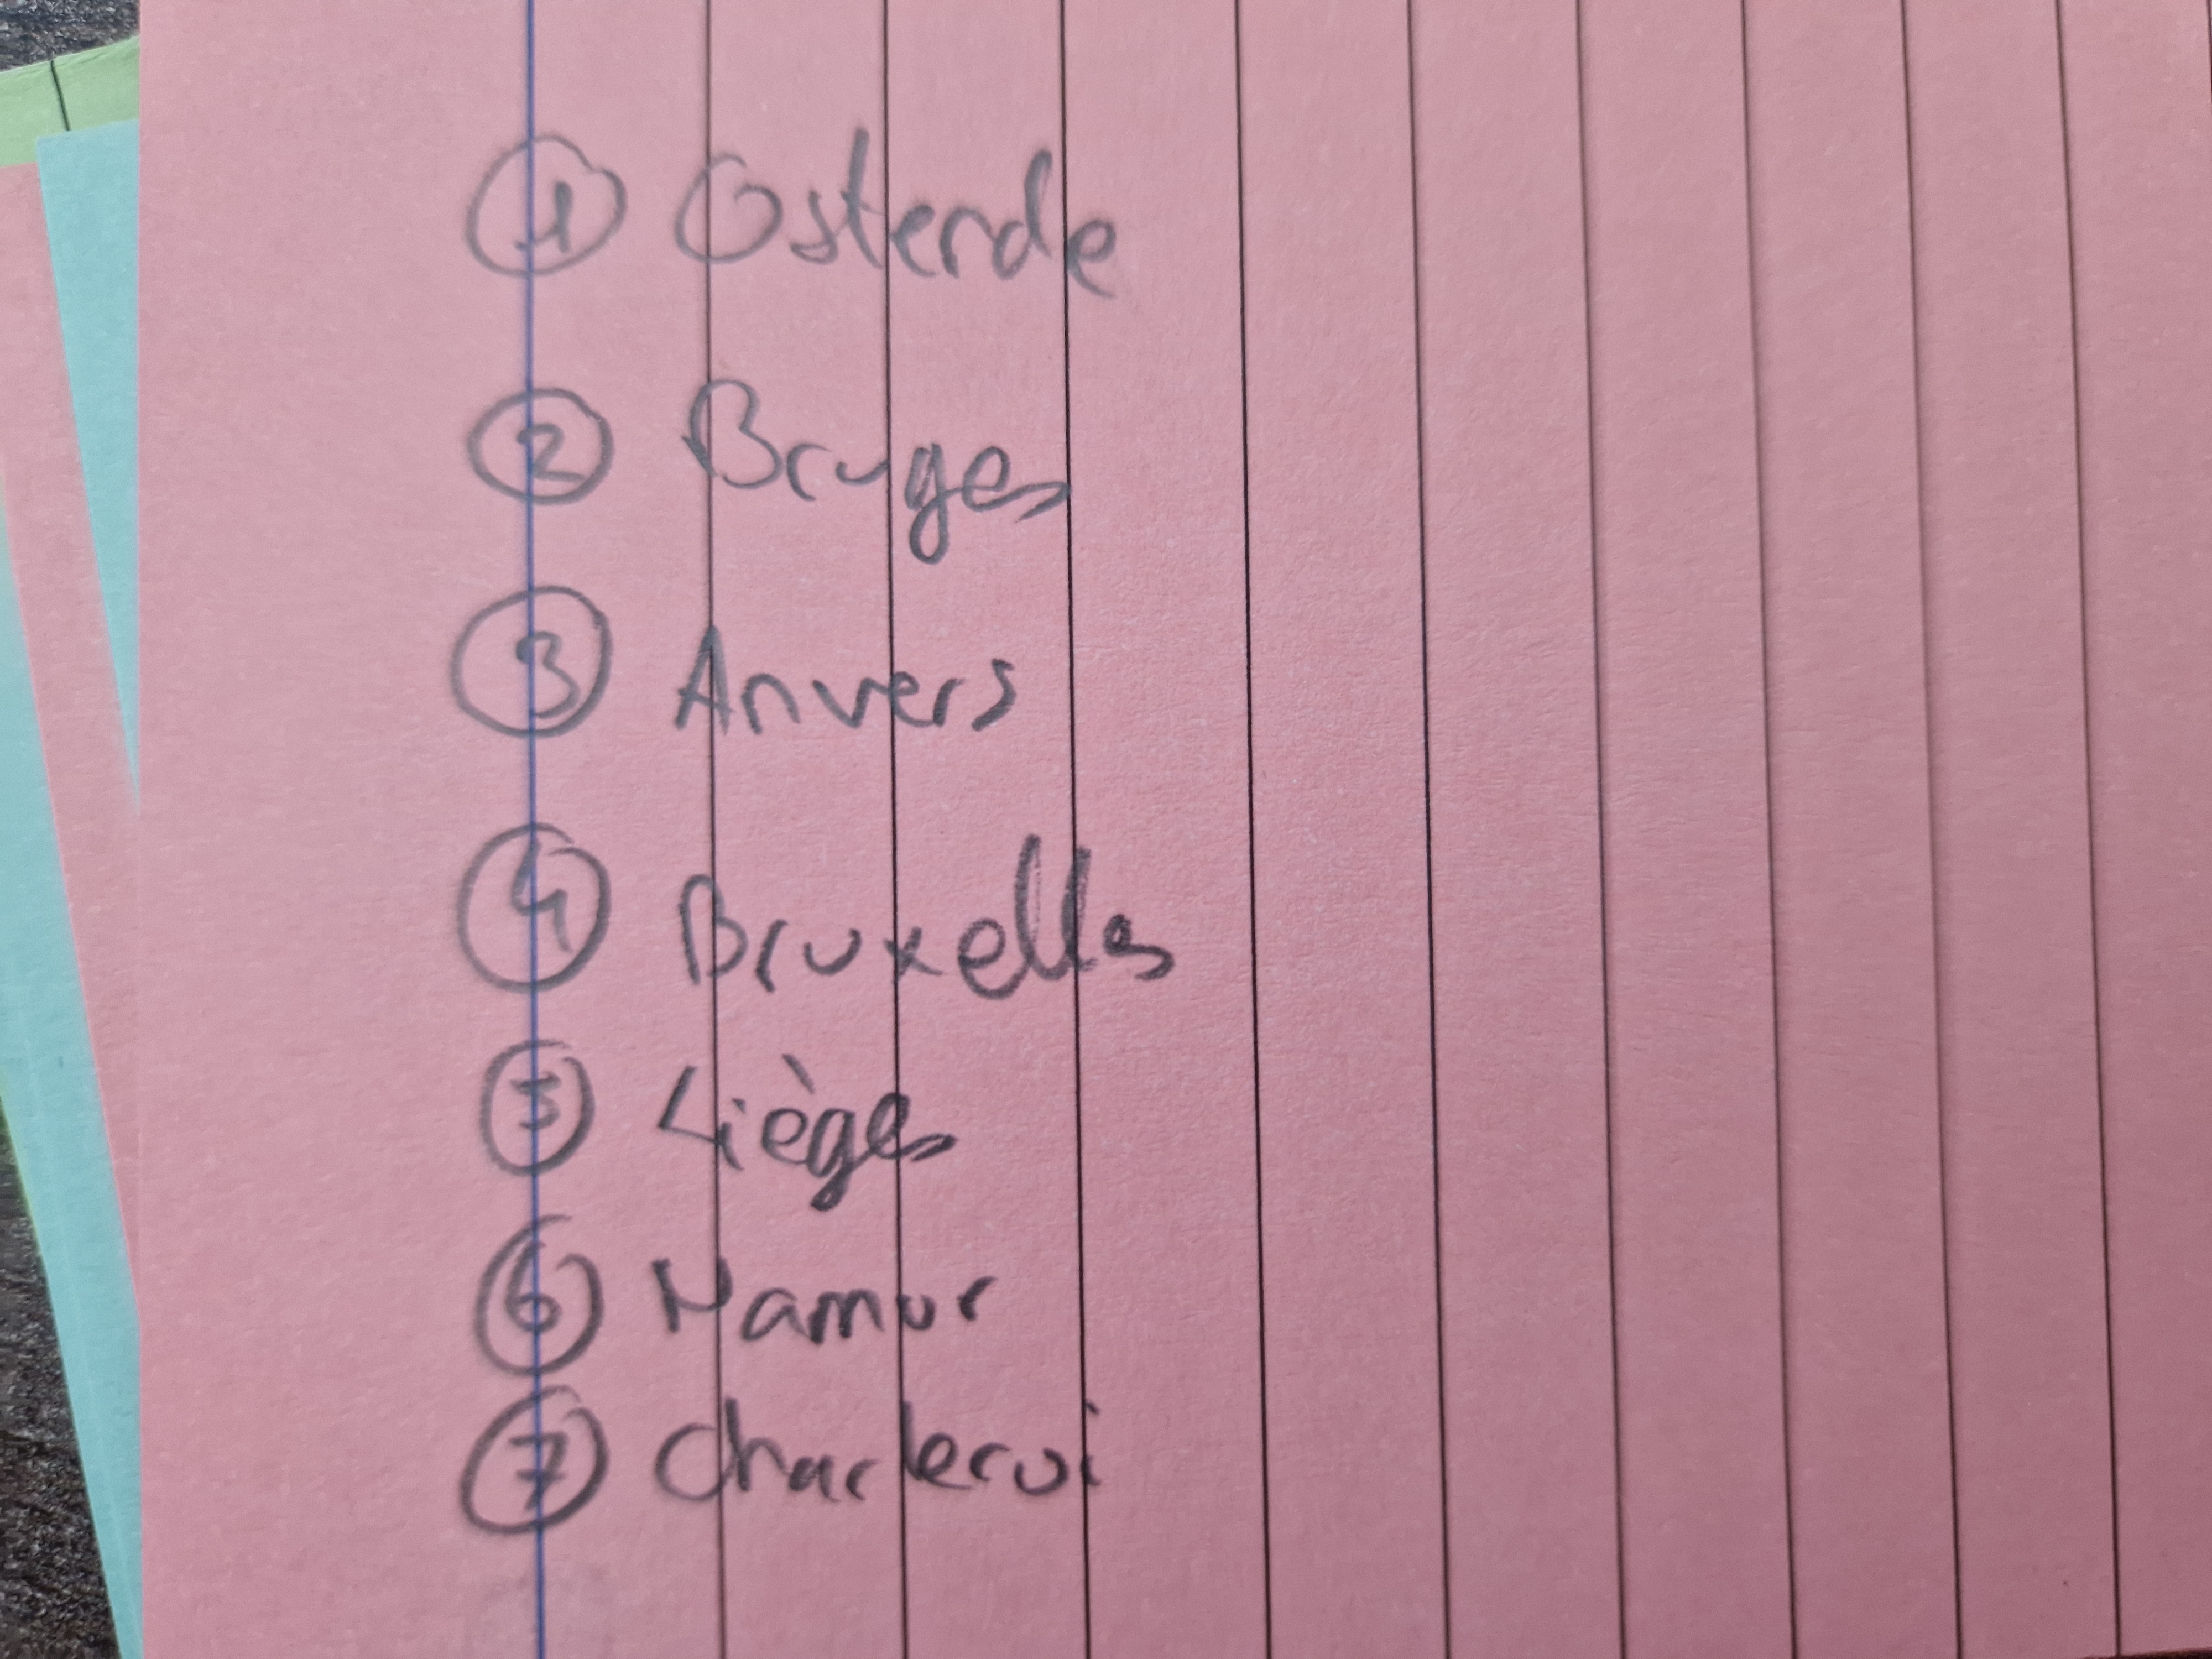 1 Ostende
2 Bruges
3 Anvers
4 Bruxelles
5 Lièges
6 Namur
7 Charleroi